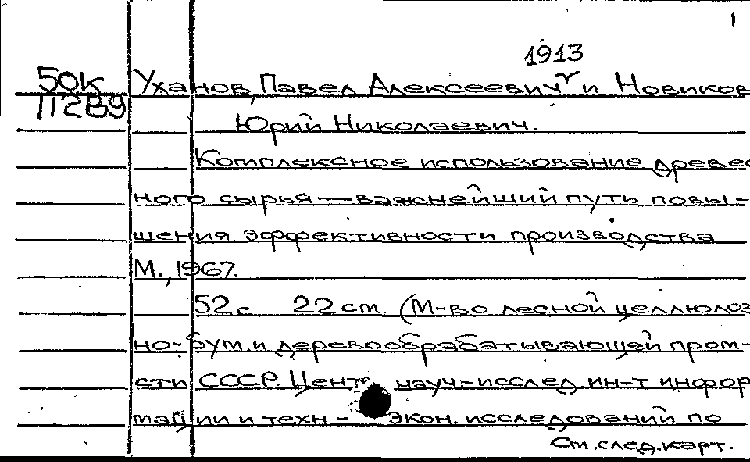 1
1913
50к Уханов, Павел Алексеевич и Новиков
П2В9
Юрий Николаевич.
Комплексное использование древес
ного сырья — важнейший путь повы-
шения эффективности производства
М., 1967.
52 с 22 см (М-во лесной целлюлоз
но-бум. и деревообрабатывающей пром-
сти СССР. Центр науч-исслед ин-т инфор
мации и техн-экон. исследований по
См. след. карт.